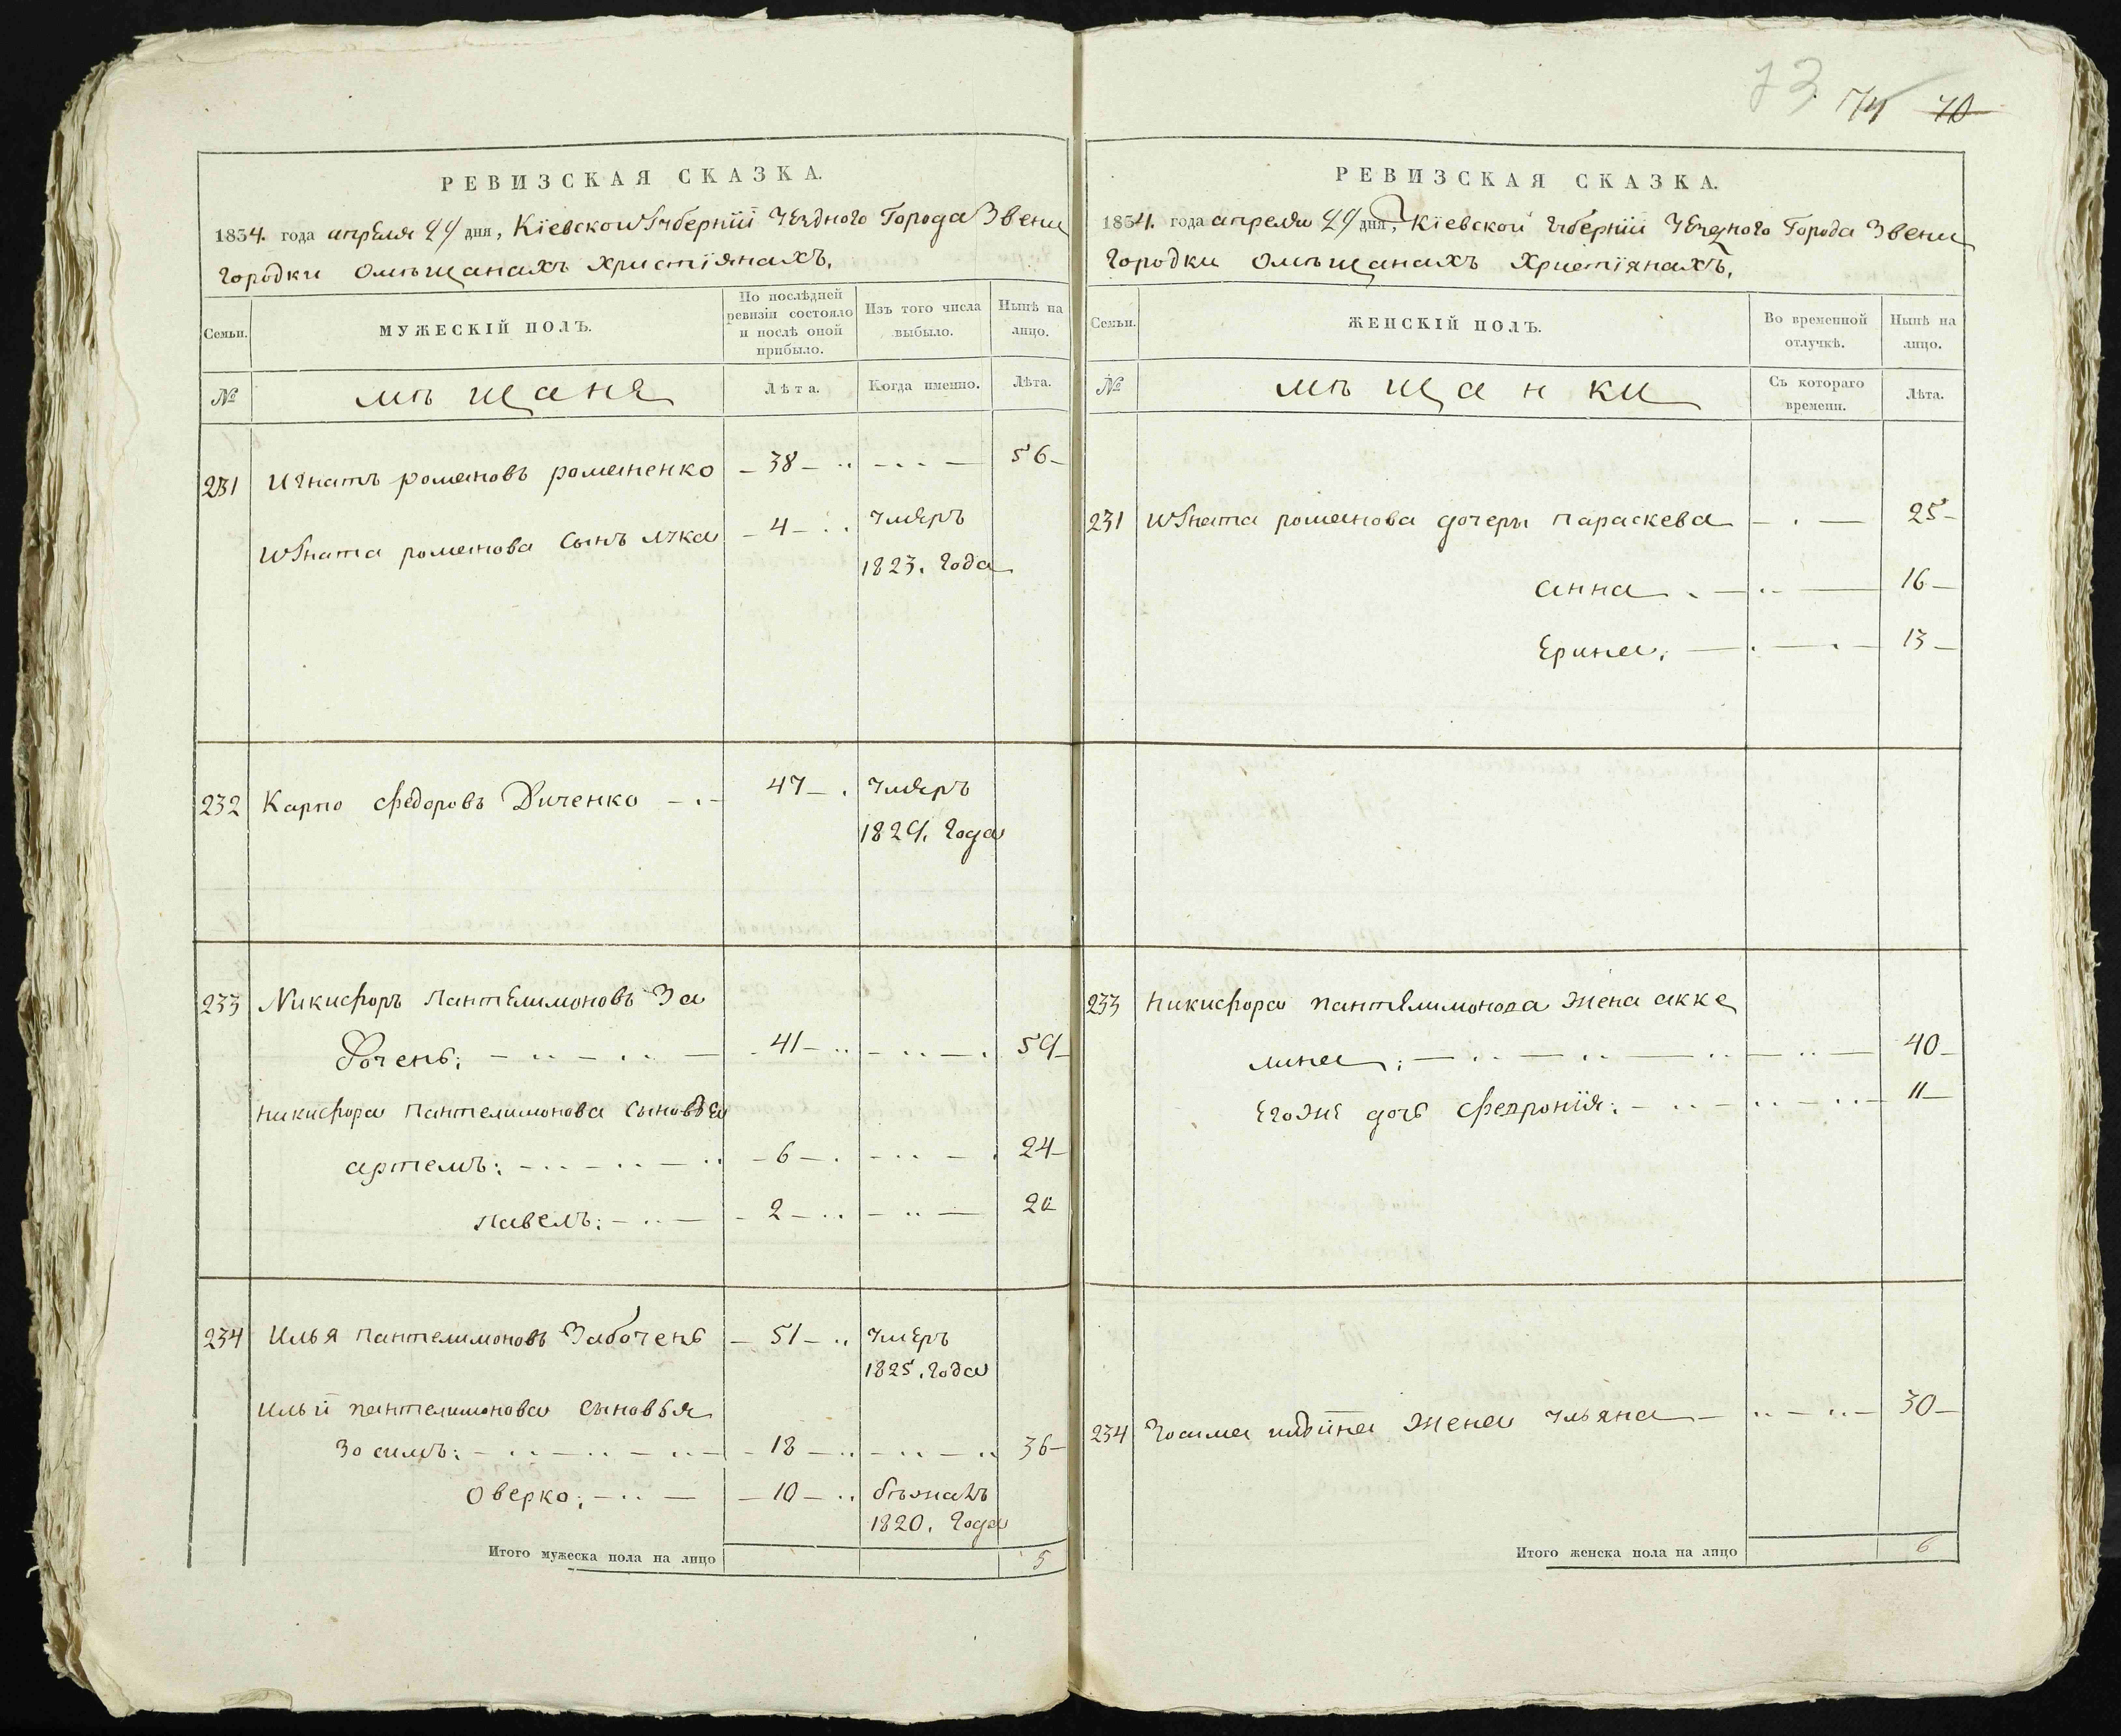 73 74 70
РЕВИЗСКАЯ СКАЗКА.
1834. года апреля 24 дня, Кіевской Губерніи Уезднаго Города Звени
городки омѣщанахъ христіянахъ.
Семьи. МУЖЕСКІЙ ПОЛЪ. По послѣдней ревизіи состояло и послѣ оной прибыло. Изъ того числа выбыло. Нынѣ на лицо.
№ мѣщаня Лѣта. Когда именно. Лѣта.
231 Игнатъ романовъ романенко 38 56
Игната романова сынъ лука 4 умеръ
1823. года
232 Карпо федоровъ Диченко 47 умеръ
1829. года
233 Никифоръ пантелимоновъ За
бочень: 41 59
никифора пантелимонова сыновья
артемъ: 6 24
павелъ: 2 20
234 Илья пантелимоновъ Забочень 51 умеръ
1825. года
ильи пантелимонова сыновья
Зосимъ: 18 36
Оверко: 10 бѣжалъ
1820. года
Итого мужеска пола на лицо 5
РЕВИЗСКАЯ СКАЗКА.
1834. года апреля 24 дня, Кіевской Губерніи Уезднаго Города Звени
городки омѣщанахъ христіянахъ.
Семьи. ЖЕНСКІЙ ПОЛЪ. Во временной отлучкѣ. Нынѣ на лицо.
№ мѣщанки Съ котораго времени. Лѣта.
231 Игната романова дочеры параскева 25
анна 16
Ерина. 13
233 никифора пантелимонова жена акке
лина: 40
егоже дочь февронія: 11
234 Зосима ильина жена ульяна 30
Итого женска пола на лицо 6